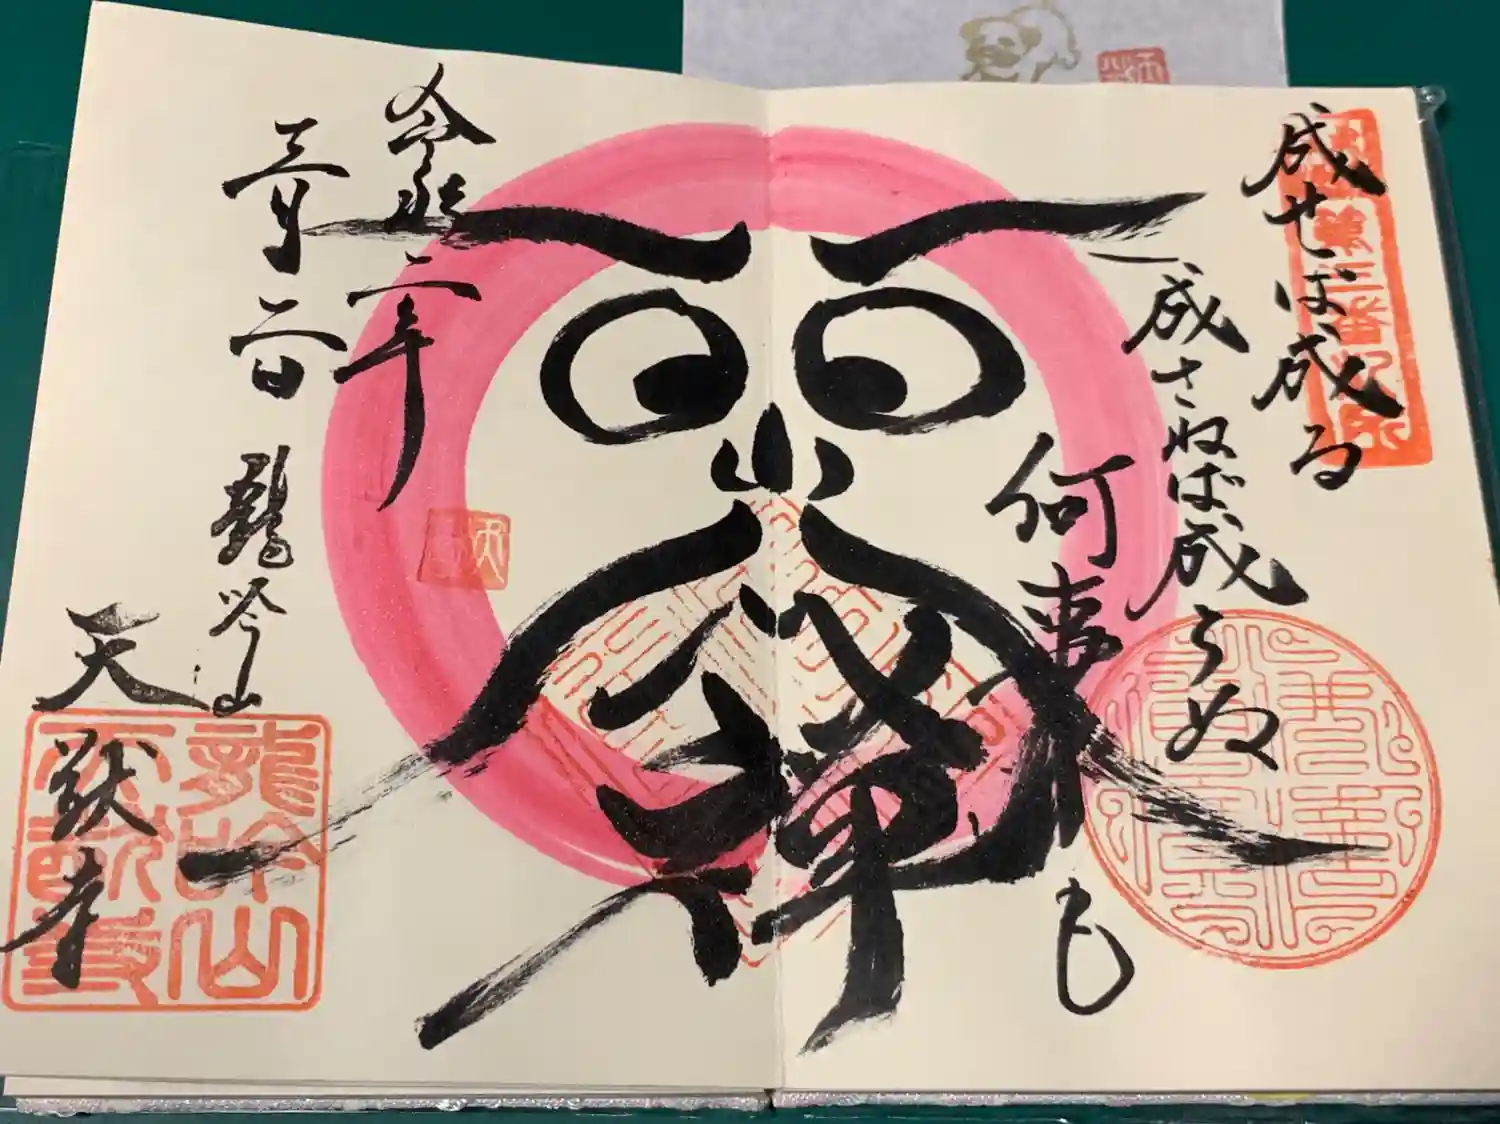 成せば成る
成さねば成らぬ
何事も
禅
令和二年
三月二日
龍吟山
天猷寺
龍吟山
天猷寺